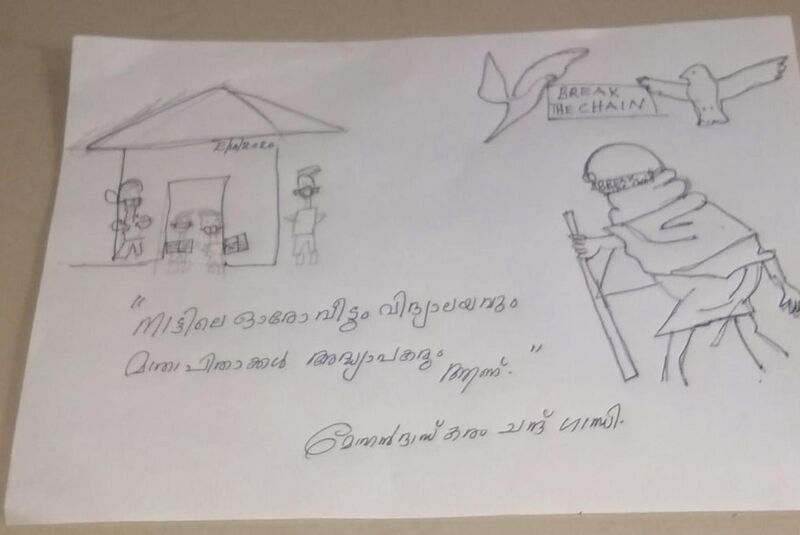 BREAK
THE CHAIN
2/10/2020
BREAK
"നാട്ടിലെ ഓരോ വീടും വിദ്യാലയവും
മാതാപിതാക്കൾ അദ്ധ്യാപകരും ആണ്."
മോഹൻദാസ് കരം ചന്ദ് ഗാന്ധി.